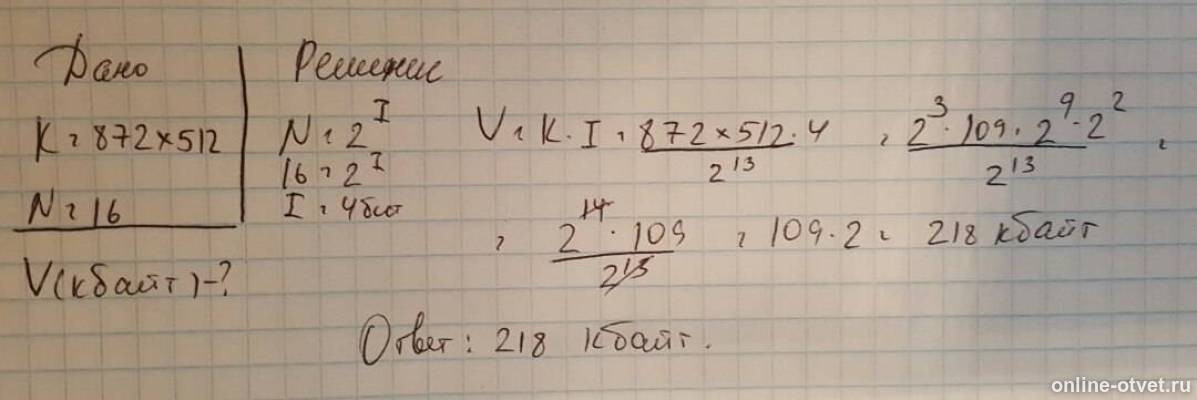 Дано
K = 872×512
N = 16
V(кбайт)-?
Решение
N = 2^I
16 = 2^I
I = 4 бит
V = K · I = 872×512·4 / 2^13 = 2^3 · 109 · 2^9 · 2^2 / 2^13 =
= 2^14 · 109 / 2^13 = 109·2 = 218 кбайт
Ответ: 218 кбайт.
online-otvet.ru